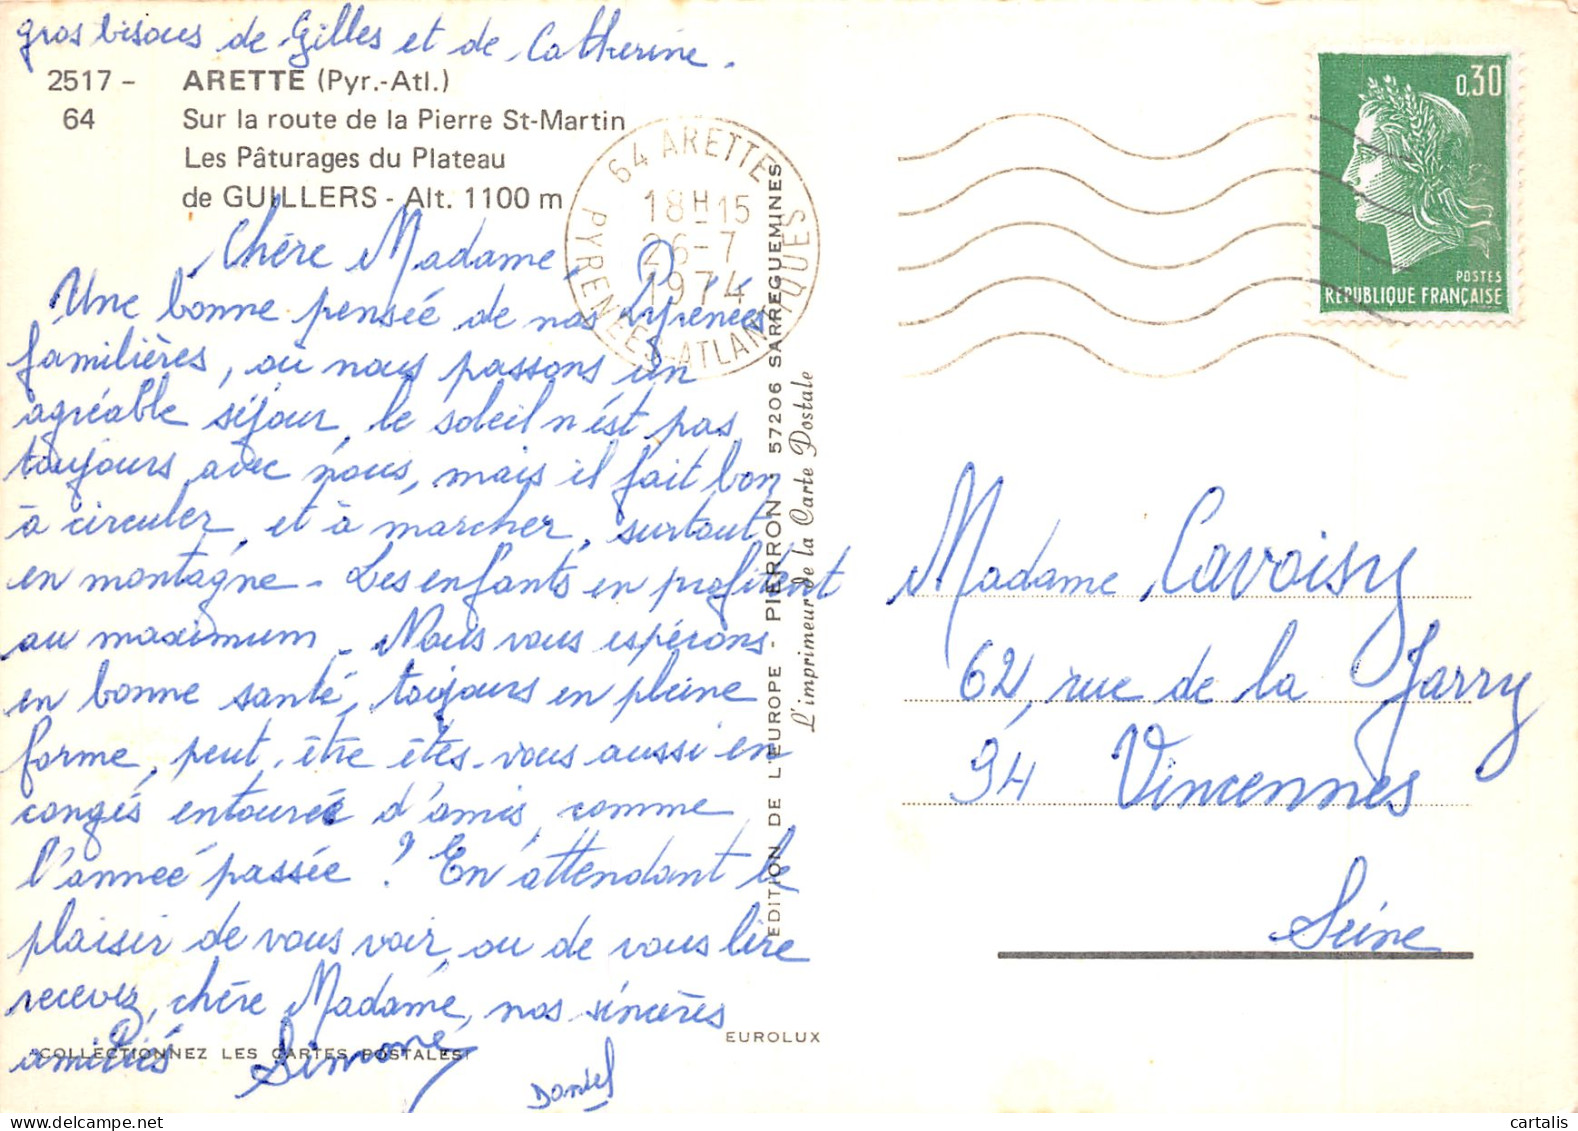 gros bisous de Gilles et de Catherine.
2517 - ARETTE (Pyr.-Atl.)
64 Sur la route de la Pierre St-Martin
Les Pâturages du Plateau
de GUILLERS - Alt. 1100 m
Chère Madame,
Une bonne pensée de nos Pyrénées
familières, où nous passons un
agréable séjour, le soleil n'est pas
toujours avec nous, mais il fait bon
à circuler, et à marcher, surtout
en montagne - Les enfants en profitent
au maximum - Nous vous espérons
en bonne santé, toujours en pleine
forme, peut-être êtes-vous aussi en
congés entourée d'amis, comme
l'année passée ? En attendant le
plaisir de vous voir, ou de vous lire
recevez, chère Madame, nos sincères
amitiés Simone
Daniel
"COLLECTIONNEZ LES CARTES POSTALES"
EUROLUX
EDITION DE L'EUROPE - PIERRON - 57206 SARREGUEMINES
L'imprimeur de la Carte Postale
64 ARETTE
18H15
26-7
1974
PYRENEES-ATLANTIQUES
0,30
POSTES
REPUBLIQUE FRANÇAISE
Madame Cavoisy
62, rue de la Jarry
94 Vincennes
Seine
cartalis
www.delcampe.net